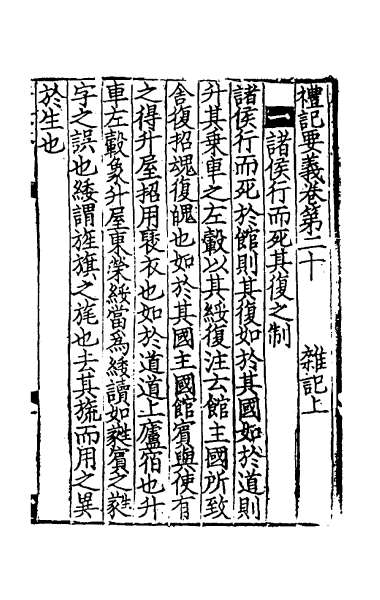 禮記要義卷第二十　雜記上
一 諸侯行而死其復之制
諸侯行而死於館則其復如於其國如於道則
升其乗車之左轂以其綏復注云館主國所致
舎復招魂復魄也如於其國主國館賔與使有
之得升屋招用裦衣也如於道道上廬宿也升
車左轂象升屋東榮綏當爲緌讀如蕤賔之蕤
字之誤也緌謂旌旗之旄也去其旒而用之異
於生也